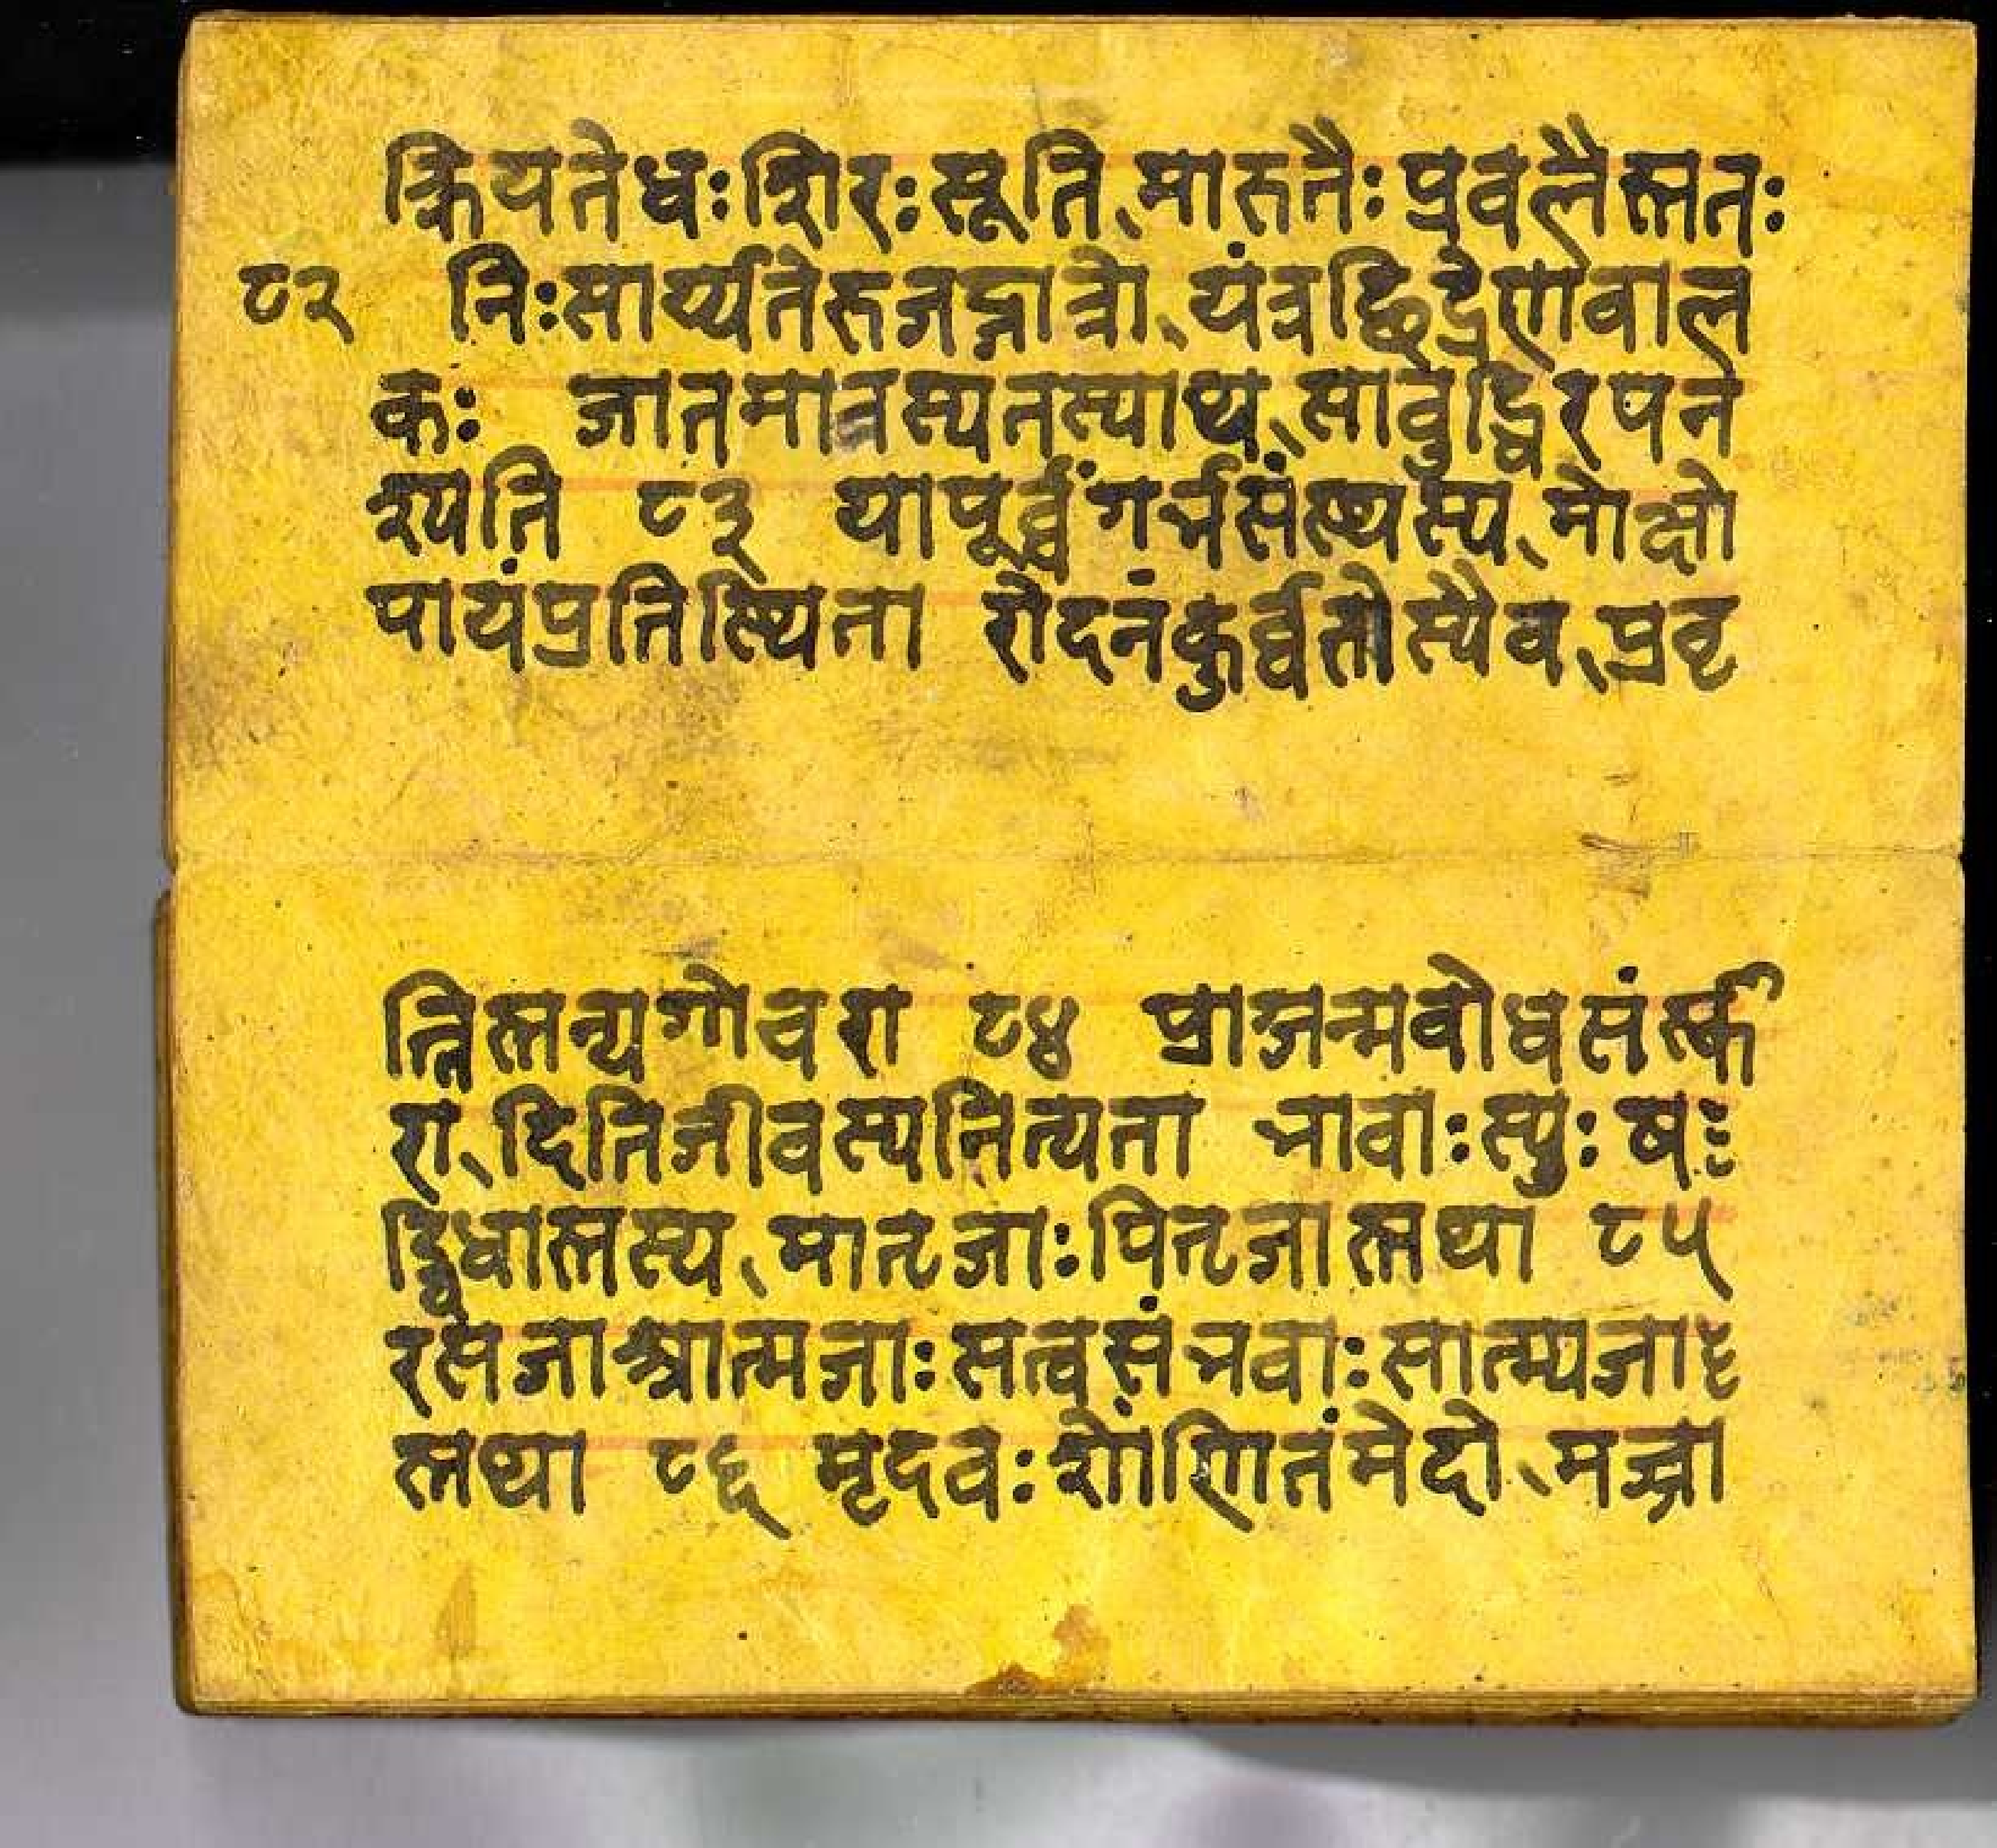 क्रियतेधःशिरःसूति,मारुतैःप्रवलैस्ततः
८२ निःसार्य्यतेरुजद्गात्रो,यंत्रछिद्रेणवाल
कः जातमात्रस्यतस्याथ,सावुद्धिरपन
श्यति ८३ यापूर्व्वंगर्भसंस्थस्य,मोक्षो
पायंप्रतिस्थिता रोदनंकुर्व्वतोस्यैव,प्रवृ
त्तिस्तन्यगोचरा ८४ प्राग्जन्मवोधसंस्का
रा,दितिजीवस्यनित्यता भावाःस्युः षः
ड्विधास्तस्य,मातृजाःपितृजास्तथा ८५
रसजाश्चात्मजाःसत्वसंभवाःसात्म्यजाः
स्तथा ८६ मृदवःशोणितंमेदो,मज्जा